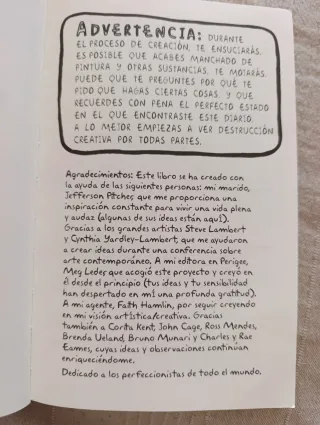 ADVERTENCIA: DURANTE
EL PROCESO DE CREACIÓN, TE ENSUCIARÁS.
ES POSIBLE QUE ACABES MANCHADO DE
PINTURA Y OTRAS SUSTANCIAS. TE MOJARÁS.
PUEDE QUE TE PREGUNTES POR QUÉ TE
PIDO QUE HAGAS CIERTAS COSAS. Y QUE
RECUERDES CON PENA EL PERFECTO ESTADO
EN EL QUE ENCONTRASTE ESTE DIARIO.
A LO MEJOR EMPIEZAS A VER DESTRUCCIÓN
CREATIVA POR TODAS PARTES.
Agradecimientos: Este libro se ha creado con
la ayuda de las siguientes personas: mi marido,
Jefferson Pitcher, que me proporciona una
inspiración constante para vivir una vida plena
y audaz (algunas de sus ideas están aquí).
Gracias a los grandes artistas Steve Lambert
y Cynthia Yardley-Lambert, que me ayudaron
a crear ideas durante una conferencia sobre
arte contemporáneo. A mi editora en Perigee,
Meg Leder que acogió este proyecto y creyó en
él desde el principio (tus ideas y tu sensibilidad
han despertado en mí una profunda gratitud).
A mi agente, Faith Hamlin, por seguir creyendo
en mi visión artística/creativa. Gracias
también a Corita Kent, John Cage, Ross Mendes,
Brenda Ueland, Bruno Munari y Charles y Rae
Eames, cuyas ideas y observaciones continúan
enriqueciéndome.
Dedicado a los perfeccionistas de todo el mundo.